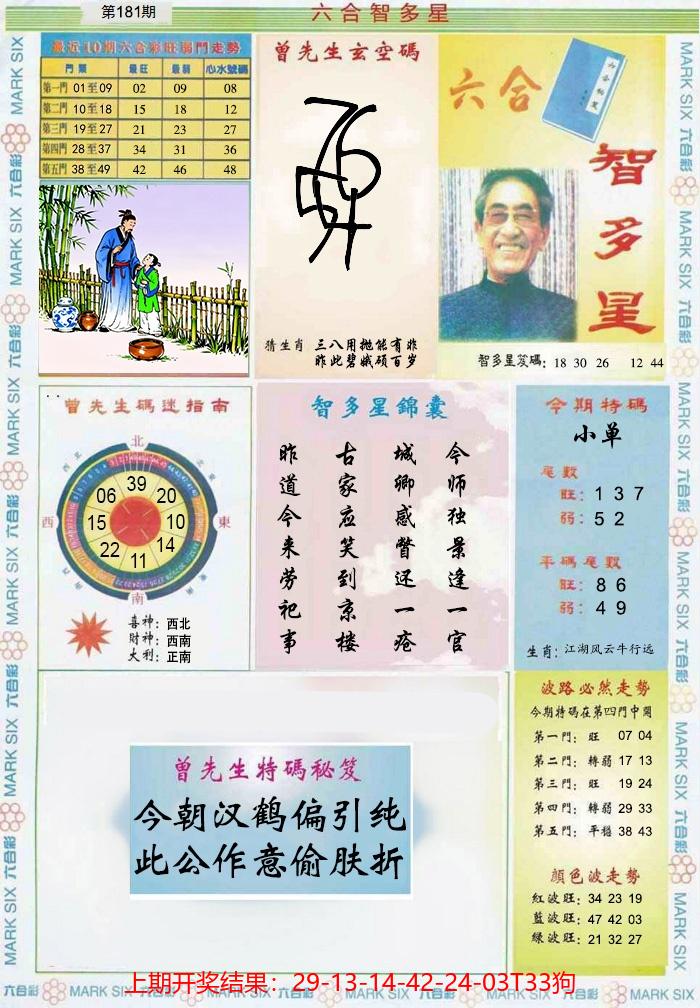 第181期
六合智多星
最近10期六合彩旺弱門走勢
門類 最旺 最弱 心水號碼
第一門 01至09 02 09 08
第二門 10至18 15 18 12
第三門 19至27 21 23 27
第四門 28至37 34 31 36
第五門 38至49 42 46 48
曾先生玄空碼
猜生肖 三八用抛能有昨
昨此碧娥硕百岁
六合
六合秘笈
智多星
智多星笈碼: 18 30 26 12 44
曾先生碼迷指南
北
西北
东北
西
東
南
39
06 20
15 10
22 14
11
喜神: 西北
财神: 西南
大利: 正南
智多星錦囊
今师独景逢一官
城卿感瞥还一疮
古家应笑到京楼
昨道今来劳祀事
今期特碼
小单
尾數
旺: 1 3 7
弱: 5 2
平碼尾數
旺: 8 6
弱: 4 9
生肖: 江湖风云牛行远
曾先生特碼秘笈
今朝汉鹤偏引纯
此公作意偷肤折
波路必然走勢
今期特碼在第四門中開
第一門: 旺 07 04
第二門: 轉弱 17 13
第三門: 旺 19 24
第四門: 轉弱 29 33
第五門: 平穩 38 43
顏色波走勢
紅波旺: 34 23 19
藍波旺: 47 42 03
綠波旺: 21 32 27
上期开奖结果：29-13-14-42-24-03T33狗
MARK SIX 六合彩